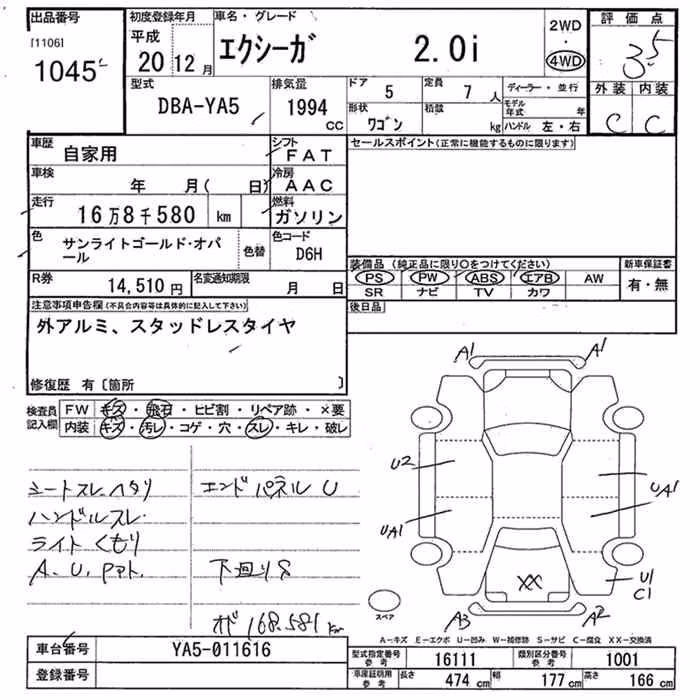 出品番号
[1106]
1045
初度登録年月
平成
20 12月
車名・グレード
エクシーガ 2.0i
2WD
・
4WD
評価点
3.5
外装 内装
C C
型式
DBA-YA5
排気量
1994
CC
ドア
5
定員
7人
形状
ワゴン
積載
kg
ディーラー・並行
モデル年式 年
ハンドル 左・右
車歴
自家用
シフト
FAT
車検
年 月( 日)
冷房
AAC
走行
16万8千580 km
燃料
ガソリン
色
サンライトゴールド・オパール
色替
色コード
D6H
R券
14,510円
名変通知期限
月 日
セールスポイント(正常に機能するものに限ります)
装備品 (純正品に限り○をつけてください)
PS PW ABS エアB AW
SR ナビ TV カワ
新車保証書
有・無
後日品
注意事項申告欄(不具合内容等は具体的に記入して下さい)
外アルミ、スタッドレスタイヤ
修復歴 有[箇所 ]
検査員
記入欄
FW キズ・飛石・ヒビ割・リペア跡・×要
内装 キズ・汚レ・コゲ・穴・スレ・キレ・破レ
シートスレ、ヘタリ
ハンドルスレ
ライトくもり
A.U.
エンドパネル U
下廻りS
オド 168,581 km
A1 A1
U2
UA1
UA1
U1
C1
XX
A3 A2
スペア
A-キズ E-エクボ U-凹み W-補修跡 S-サビ C-腐食 XX-交換済
車台番号
YA5-011616
登録番号
型式指定番号
参考
16111
類別区分番号
参考
1001
車庫証明用
参考
長さ
474 cm
幅
177 cm
高さ
166 cm